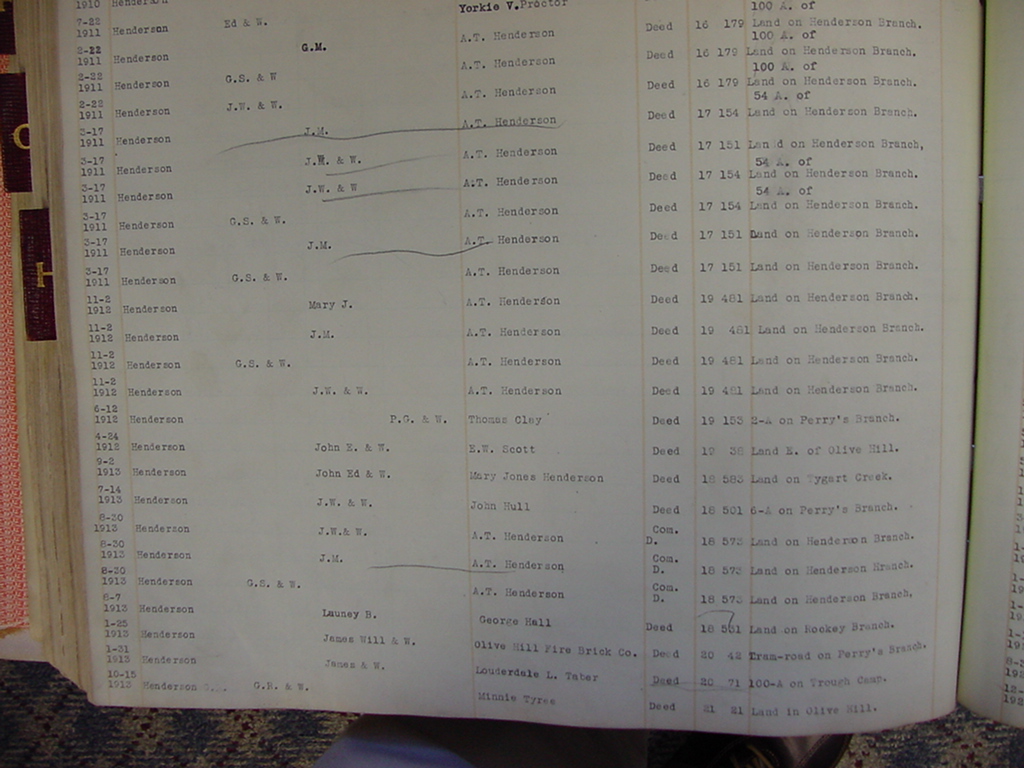 1910 Henderson
7-22 1911 Henderson Ed & W. Yorkie V. Proctor
2-22 1911 Henderson G.M. A.T. Henderson Deed 16 179 100 A. of Land on Henderson Branch.
2-22 1911 Henderson G.S. & W A.T. Henderson Deed 16 179 100 A. of Land on Henderson Branch.
2-22 1911 Henderson J.W. & W. A.T. Henderson Deed 16 179 100 A. of Land on Henderson Branch.
3-17 1911 Henderson J.M. A.T. Henderson Deed 17 154 54 A. of Land on Henderson Branch.
3-17 1911 Henderson J.W. & W. A.T. Henderson Deed 17 151 Land on Henderson Branch,
3-17 1911 Henderson J.W. & W A.T. Henderson Deed 17 154 54 A. of Land on Henderson Branch.
3-17 1911 Henderson G.S. & W. A.T. Henderson Deed 17 154 54 A. of Land on Henderson Branch.
3-17 1911 Henderson J.M. A.T. Henderson Deed 17 151 Land on Henderson Branch.
3-17 1911 Henderson G.S. & W. A.T. Henderson Deed 17 151 Land on Henderson Branch.
11-2 1912 Henderson Mary J. A.T. Henderson Deed 19 481 Land on Henderson Branch.
11-2 1912 Henderson J.M. A.T. Henderson Deed 19 481 Land on Henderson Branch.
11-2 1912 Henderson G.S. & W. A.T. Henderson Deed 19 481 Land on Henderson Branch.
11-2 1912 Henderson J.W. & W. A.T. Henderson Deed 19 481 Land on Henderson Branch.
6-12 1912 Henderson P.G. & W. Thomas Clay Deed 19 153 2-A on Perry's Branch.
4-24 1912 Henderson John E. & W. E.W. Scott Deed 19 38 Land E. of Olive Hill.
9-2 1913 Henderson John Ed & W. Mary Jones Henderson Deed 18 583 Land on Tygart Creek.
7-14 1913 Henderson J.W. & W. John Hull Deed 18 501 6-A on Perry's Branch.
8-30 1913 Henderson J.W.& W. A.T. Henderson Com. D. 18 573 Land on Henderson Branch.
8-30 1913 Henderson J.M. A.T. Henderson Com. D. 18 573 Land on Henderson Branch.
8-30 1913 Henderson G.S. & W. A.T. Henderson Com. D. 18 573 Land on Henderson Branch.
6-7 1913 Henderson Launey B. George Hall Deed 18 Land on Rockey Branch.
1-25 1913 Henderson James Will & W. Olive Hill Fire Brick Co. Deed 20 42 Tram-road on Perry's Branch.
1-31 1913 Henderson James & W. Louderdale L. Taber Deed 20 71 100-A on Trough Camp.
10-15 1913 Henderson G.R. & W. Minnie Tyree Deed 21 21 Land in Olive Hill.
T